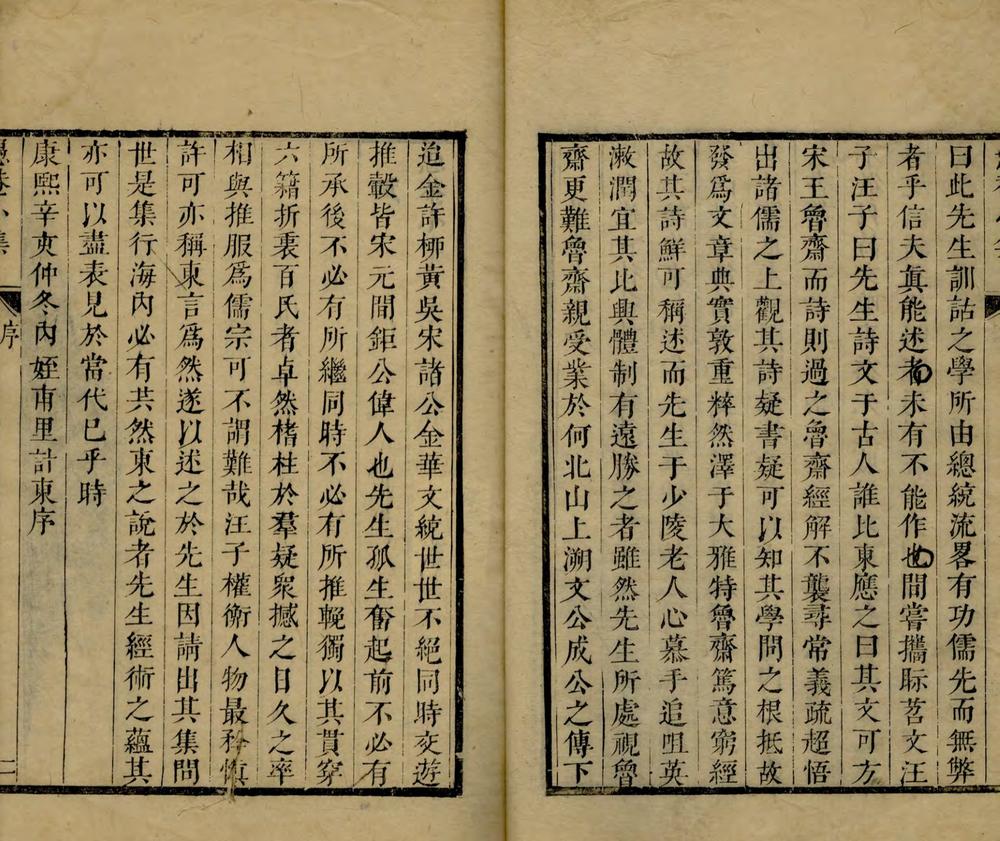 曰此先生訓詁之學所由總統流畧有功儒先而無弊
者乎信夫真能述者未有不能作也間嘗攜眎苕文汪
子汪子曰先生詩文于古人誰比東應之曰其文可方
宋王魯齋而詩則過之魯齋經解不襲尋常義疏超悟
出諸儒之上觀其詩疑書疑可以知其學問之根抵故
發爲文章典實敦重粹然澤于大雅特魯齋篤意窮經
故其詩鮮可稱述而先生于少陵老人心慕手追咀英
漱潤宜其比興體制有遠勝之者雖然先生所處視魯
齋更難魯齋親受業於何北山上溯文公成公之傳下
迨金許栁黃吳宋諸公金華文統世世不絕同時交遊
推轂皆宋元間鉅公偉人也先生孤生奮起前不必有
所承後不必有所繼同時不必有所推輓獨以其貫穿
六籍折衷百氏者卓然楮柱於羣疑衆撼之日久之率
相與推服爲儒宗可不謂難哉汪子權衡人物最矜慎
許可亦稱東言爲然遂以述之於先生因請出其集問
世是集行海內必有共然東之說者先生經術之蘊其
亦可以盡表見於當代已乎時
康熙辛亥仲冬內姪甫里計東序
愚菴小集
序
二